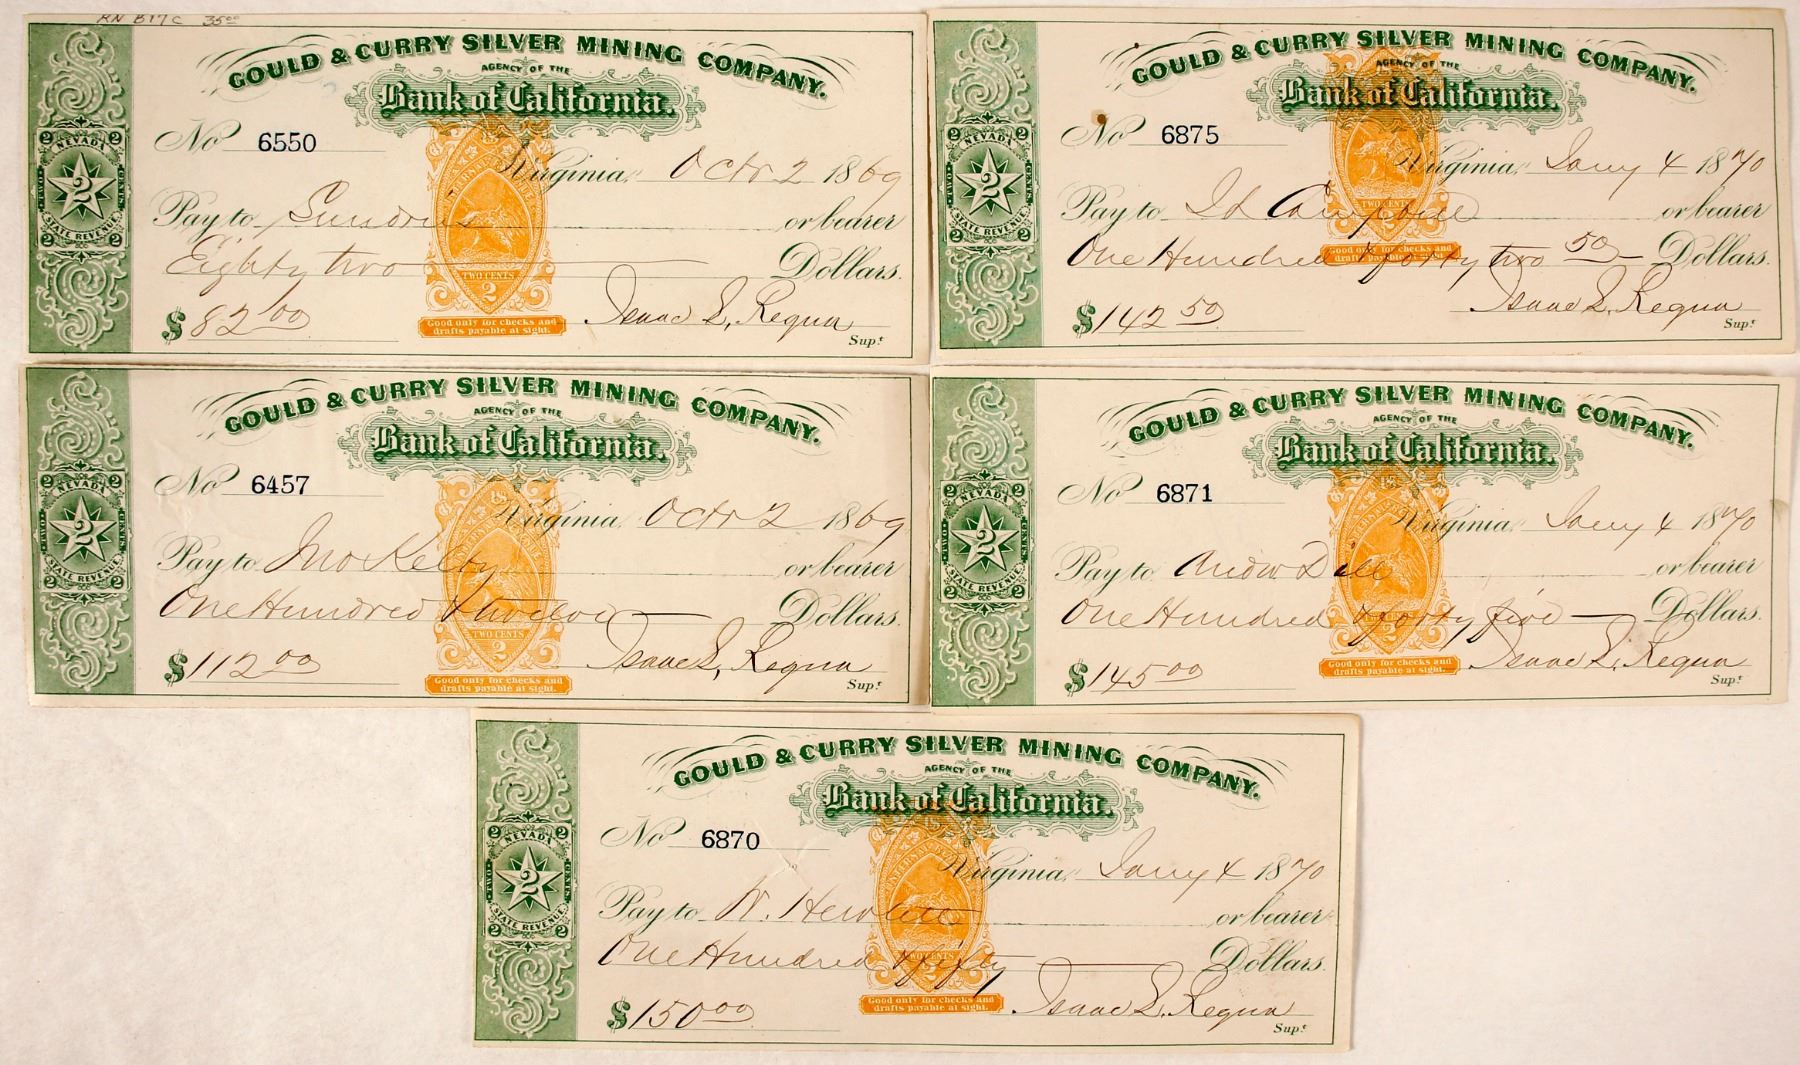 RN B17c 35⁰⁰
GOULD & CURRY SILVER MINING COMPANY.
AGENCY OF THE
Bank of California.
2 2
NEVADA
TWO 2 CENTS
STATE REVENUE
2 2
No 6550
Virginia, Octr 2 1869
Pay to Sundries or bearer
Eighty two Dollars.
TWO CENTS
2
$ 82 00
Good only for checks and
drafts payable at sight.
Isaac L. Requa
Supt
GOULD & CURRY SILVER MINING COMPANY.
AGENCY OF THE
Bank of California.
2 2
NEVADA
TWO 2 CENTS
STATE REVENUE
2 2
No 6875
Virginia, Jany 4 1870
Pay to or bearer
TWO CENTS
One Hundred & forty two 50 Dollars.
Good only for checks and
drafts payable at sight.
$ 142 50
Isaac L. Requa
Supt
GOULD & CURRY SILVER MINING COMPANY.
AGENCY OF THE
Bank of California.
2 2
NEVADA
TWO 2 CENTS
STATE REVENUE
2 2
No 6457
Virginia, Octr 2 1869
Pay to Jno Kelby or bearer
One Hundred & twelve Dollars.
TWO CENTS
2
$ 112 00
Good only for checks and
drafts payable at sight.
Isaac L. Requa
Supt
GOULD & CURRY SILVER MINING COMPANY.
AGENCY OF THE
Bank of California.
2 2
NEVADA
TWO 2 CENTS
STATE REVENUE
2 2
No 6871
Virginia, Jany 4 1870
Pay to Andw Dill or bearer
One Hundred & forty five Dollars.
2
$ 145 00
Good only for checks and
drafts payable at sight.
Isaac L. Requa
Supt
GOULD & CURRY SILVER MINING COMPANY.
AGENCY OF THE
Bank of California.
2 2
NEVADA
TWO 2 CENTS
STATE REVENUE
2 2
No 6870
Virginia, Jany 4 1870
Pay to W. Hewlett or bearer
One Hundred & fifty Dollars.
TWO CENTS
2
$ 150 00
Good only for checks and
drafts payable at sight.
Isaac L. Requa
Supt